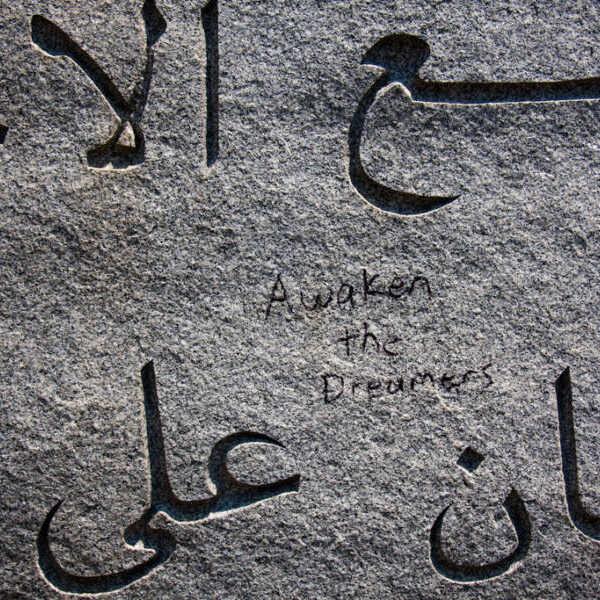 ـع الا
Awaken
the
Dreamers
ان على